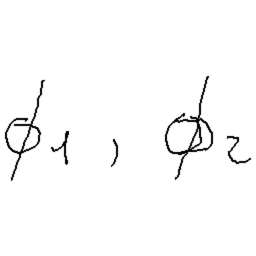 ϕ₁, ϕ₂